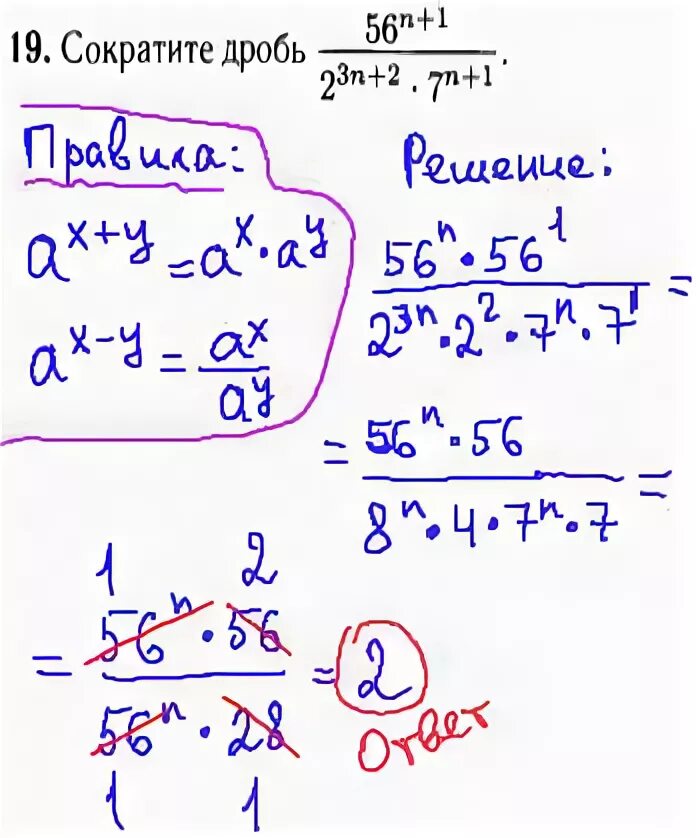 19. Сократите дробь 56^{n+1} / (2^{3n+2} · 7^{n+1}).
Правила:
a^{x+y} = a^x · a^y
a^{x-y} = a^x / a^y
Решение:
(56^n · 56^1) / (2^{3n} · 2^2 · 7^n · 7^1) =
= (56^n · 56) / (8^n · 4 · 7^n · 7) =
1 2
= (56^n · 56) / (56^n · 28) = 2
1 1
Ответ